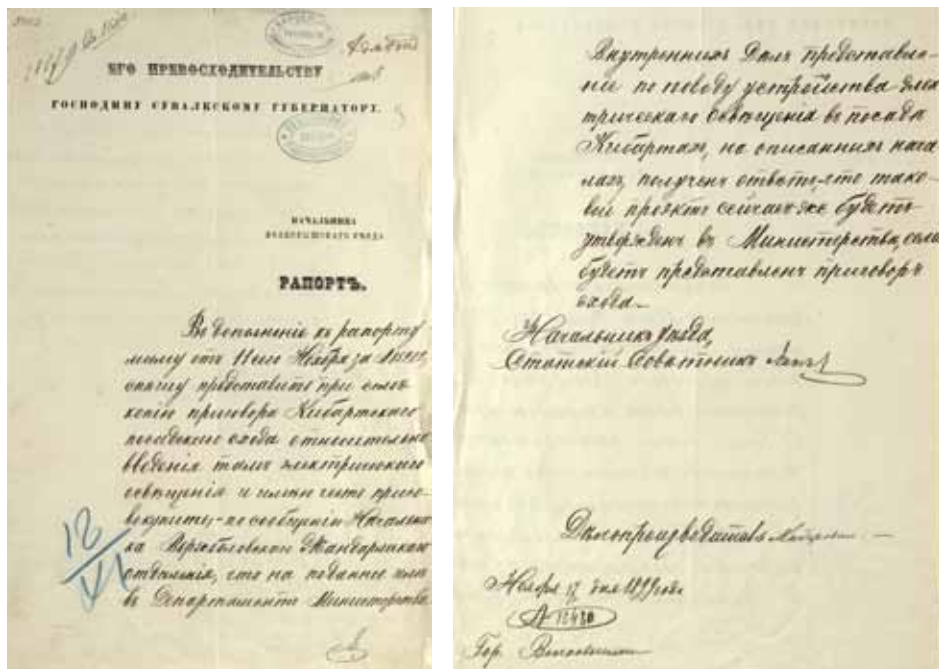 ЕГО ПРЕВОСХОДИТЕЛЬСТВУ
ГОСПОДИНУ СУВАЛКСКОМУ ГУБЕРНАТОРУ.
НАЧАЛЬНИКА
ВОЛКОВЫШСКАГО УѢЗДА
РАПОРТЪ.
Въ дополненіе къ рапорту
моему отъ 11 сего Ноября за
спѣшу представить при семъ
копію приговора Кибартскаго
посадскаго схода относительно
введенія тамъ электрическаго
освѣщенія и имѣю честь присо-
вокупить, по сообщенію Начальни-
ка Вержболовскаго Жандармскаго
отдѣленія, что на поданное имъ
въ Департаментъ Министерства
12
VI
Внутреннихъ Дѣлъ представле-
ніе по поводу устройства элек-
трическаго освѣщенія въ посадѣ
Кибартахъ, на описанныхъ нача-
лахъ, полученъ отвѣтъ, что тако-
вой проэктъ сейчасъ же будетъ
утвержденъ въ Министерствѣ, если
будетъ представленъ приговоръ
схода.
Начальникъ Уѣзда,
Статскій Совѣтникъ
Дѣлопроизводитель
Ноября 17 дня 1899 года
№ 12480
Гор. Волковышки